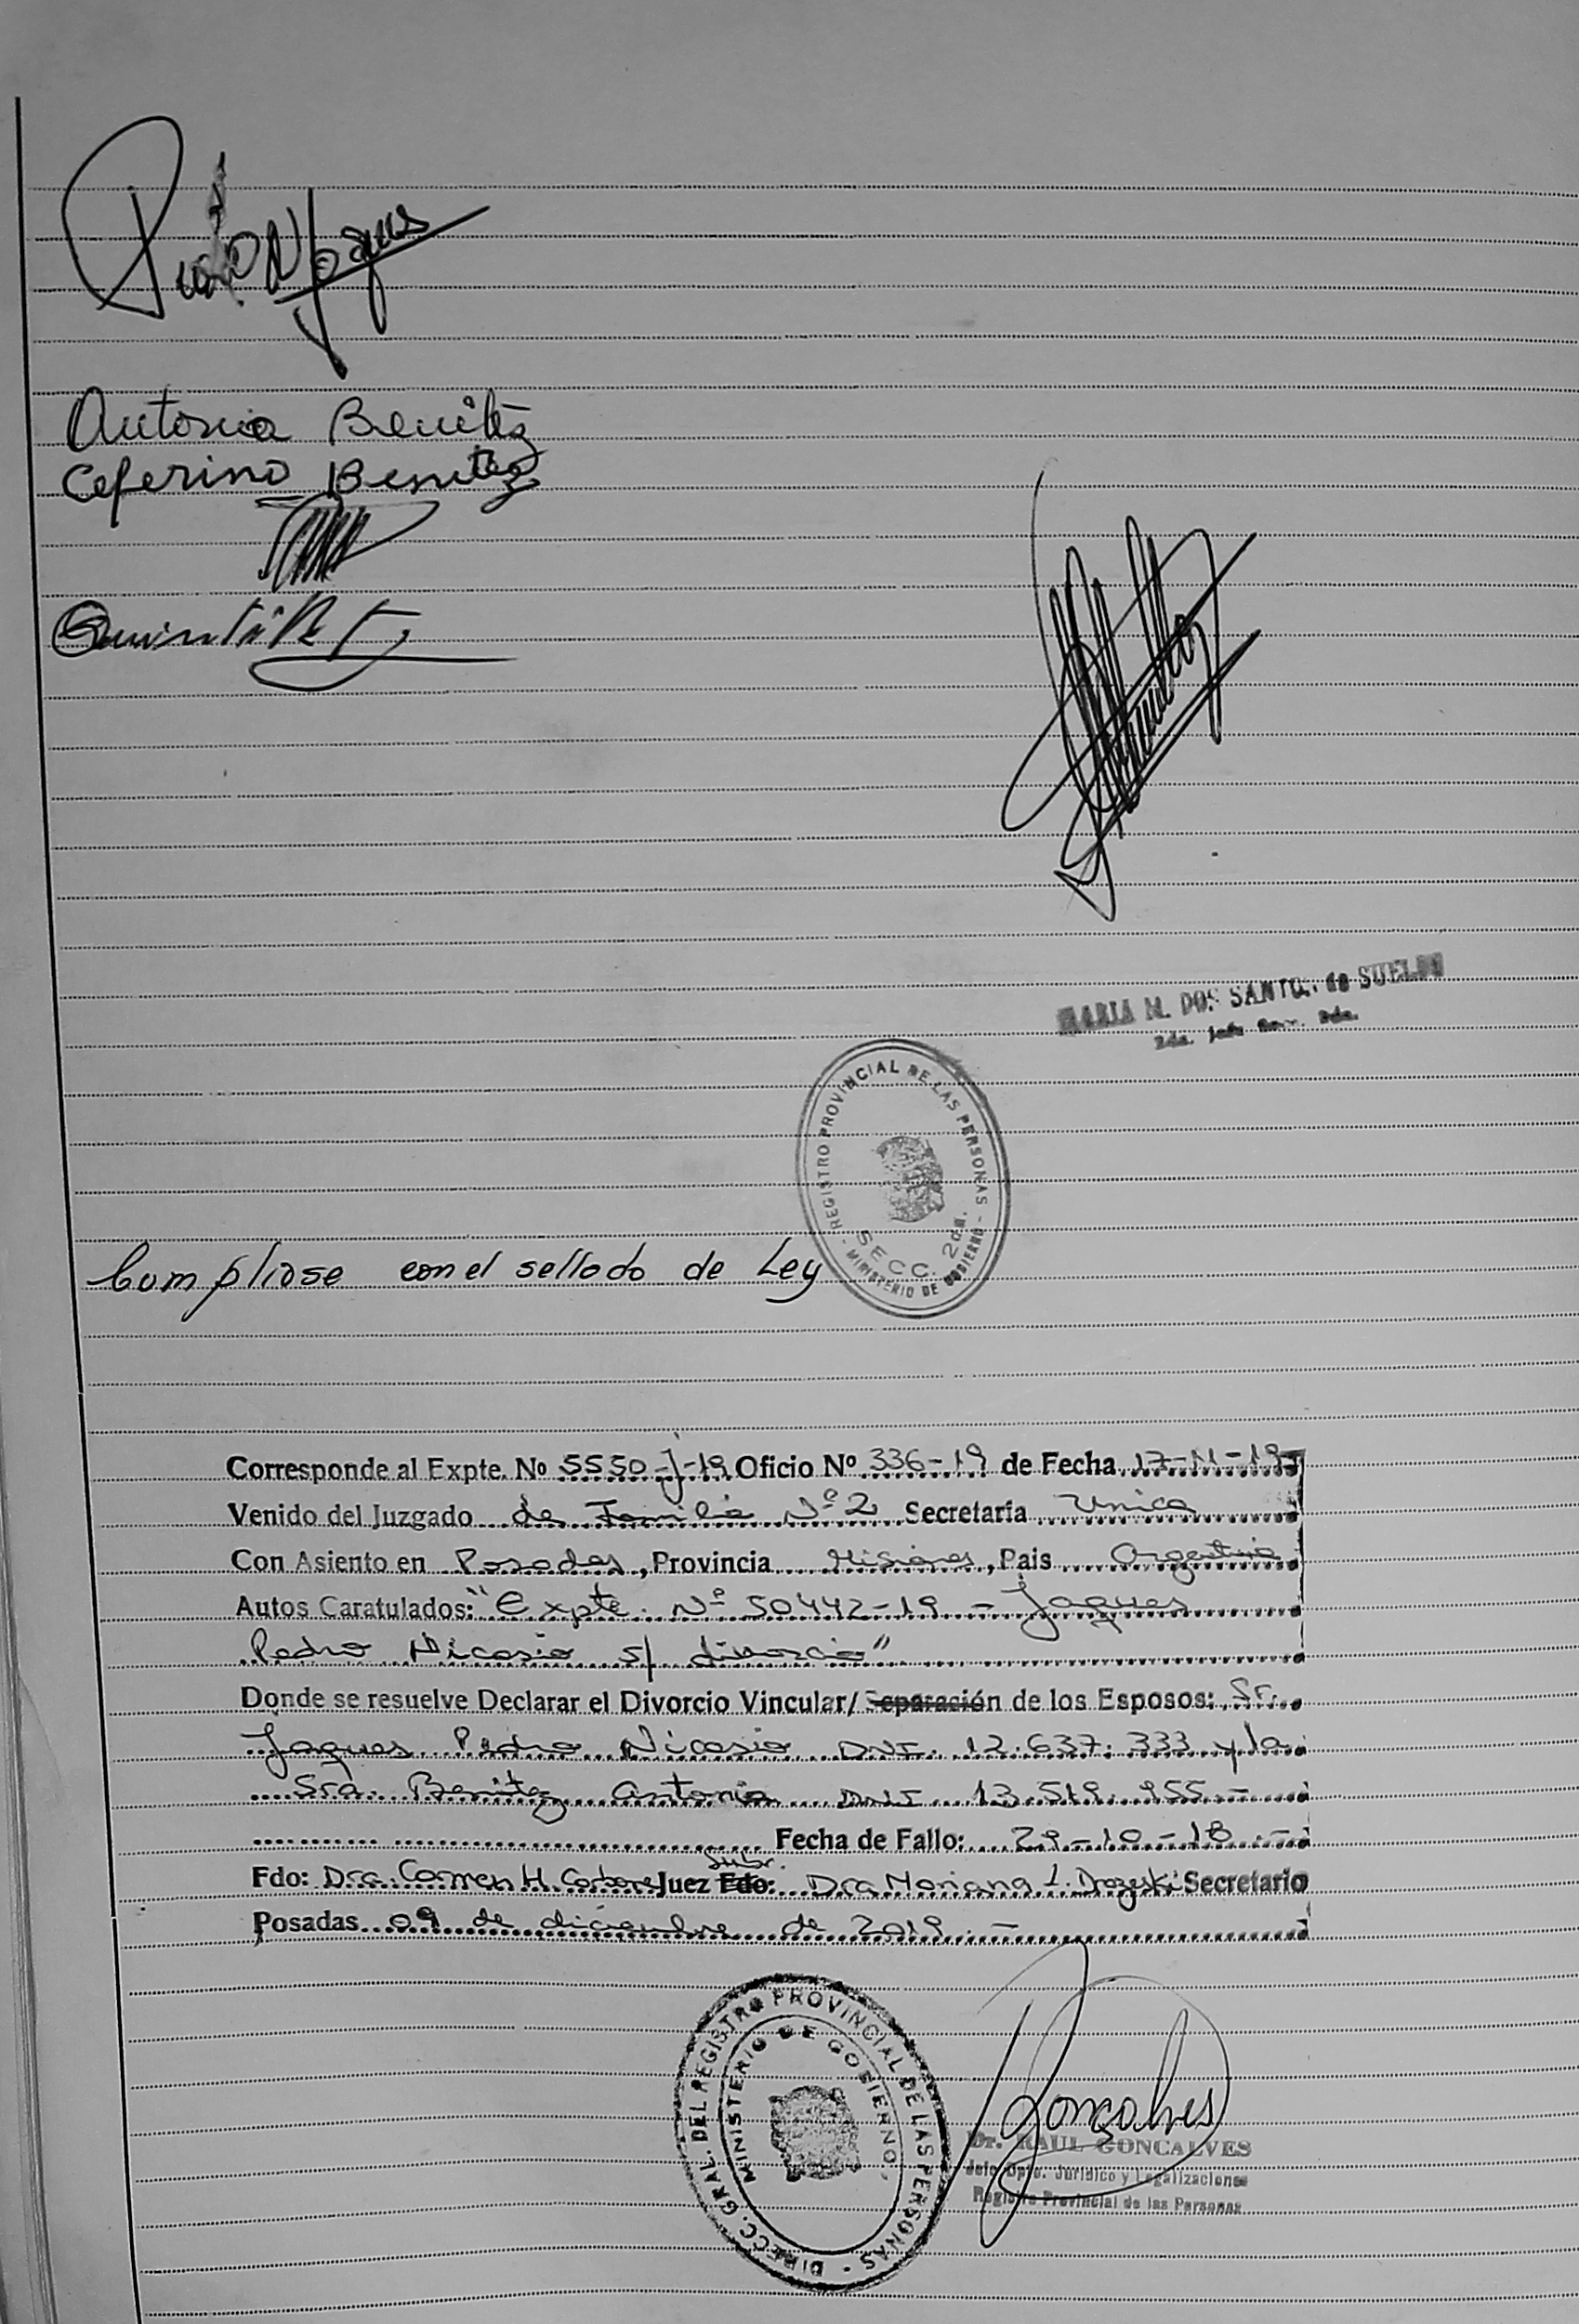 Antonia Benitez
Ceferino Benitez
MARIA M. DOS SANTOS de SUELDO
REGISTRO PROVINCIAL DE LAS PERSONAS - MINISTERIO DE GOBIERNO -
SECC. 2da.
Cumpliose con el sellado de Ley
Corresponde al Expte. No 5550-J-19 Oficio Nº 336-19 de Fecha 17-11-19
Venido del Juzgado de Familia Nº 2 Secretaría Unica
Con Asiento en Posadas, Provincia Misiones, Pais Argentina
Autos Caratulados: "Expte. Nº 50442-19 - Jaques
Pedro Nicasio s/ divorcio"
Donde se resuelve Declarar el Divorcio Vincular/ Separación de los Esposos: Sr.
Jaques Pedro Nicasio DNI. 12.637.333 y la
Sra. Benitez Antonia DNI 13.519.955.-
Fecha de Fallo: 29-10-18.-
Fdo: Dra. Carmen H. Juez Fdo: Subr. Dra Mariana I. Secretario
Posadas 09 de diciembre de 2019.-
DIRECC. GRAL. DEL REGISTRO PROVINCIAL DE LAS PERSONAS -
MINISTERIO DE GOBIERNO,
Gonçalves
Dr. RAUL GONCALVES
Jefe Dpto. Jurídico y Legalizaciones
Registro Provincial de las Personas